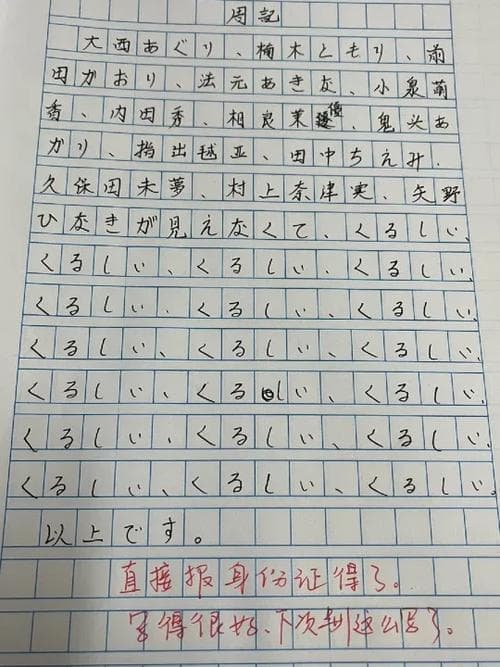 周记
大西あぐり、楠木ともり、前
田かおり、法元あきな、小泉萌
香、内田秀、相良茉優、鬼头あ
かり、指出毬亚、田中ちえみ、
久保田未夢、村上奈津実、矢野
ひなきが見えなくて、くるしい、
くるしい、くるしい、くるしい、
くるしい、くるしい、くるしい、
くるしい、くるしい、くるしい、
くるしい、くるしい、くるしい、
くるしい、くるしい、くるしい、
くるしい、くるしい、くるしい。
以上です。
直接报身份证得了。
写得很好、下次别这么写了。